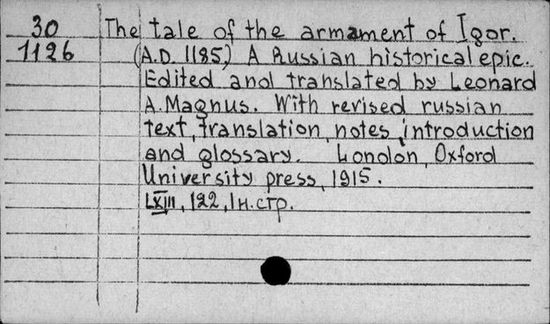 30 The tale of the armament of Igor.
1126 (A.D. 1185) A Russian historical epic.
Edited and translated by Leonard
A. Magnus. With revised russian
text, translation, notes, introduction
and glossary. London, Oxford
University press, 1915.
LXIII, 122, 1 н. стр.